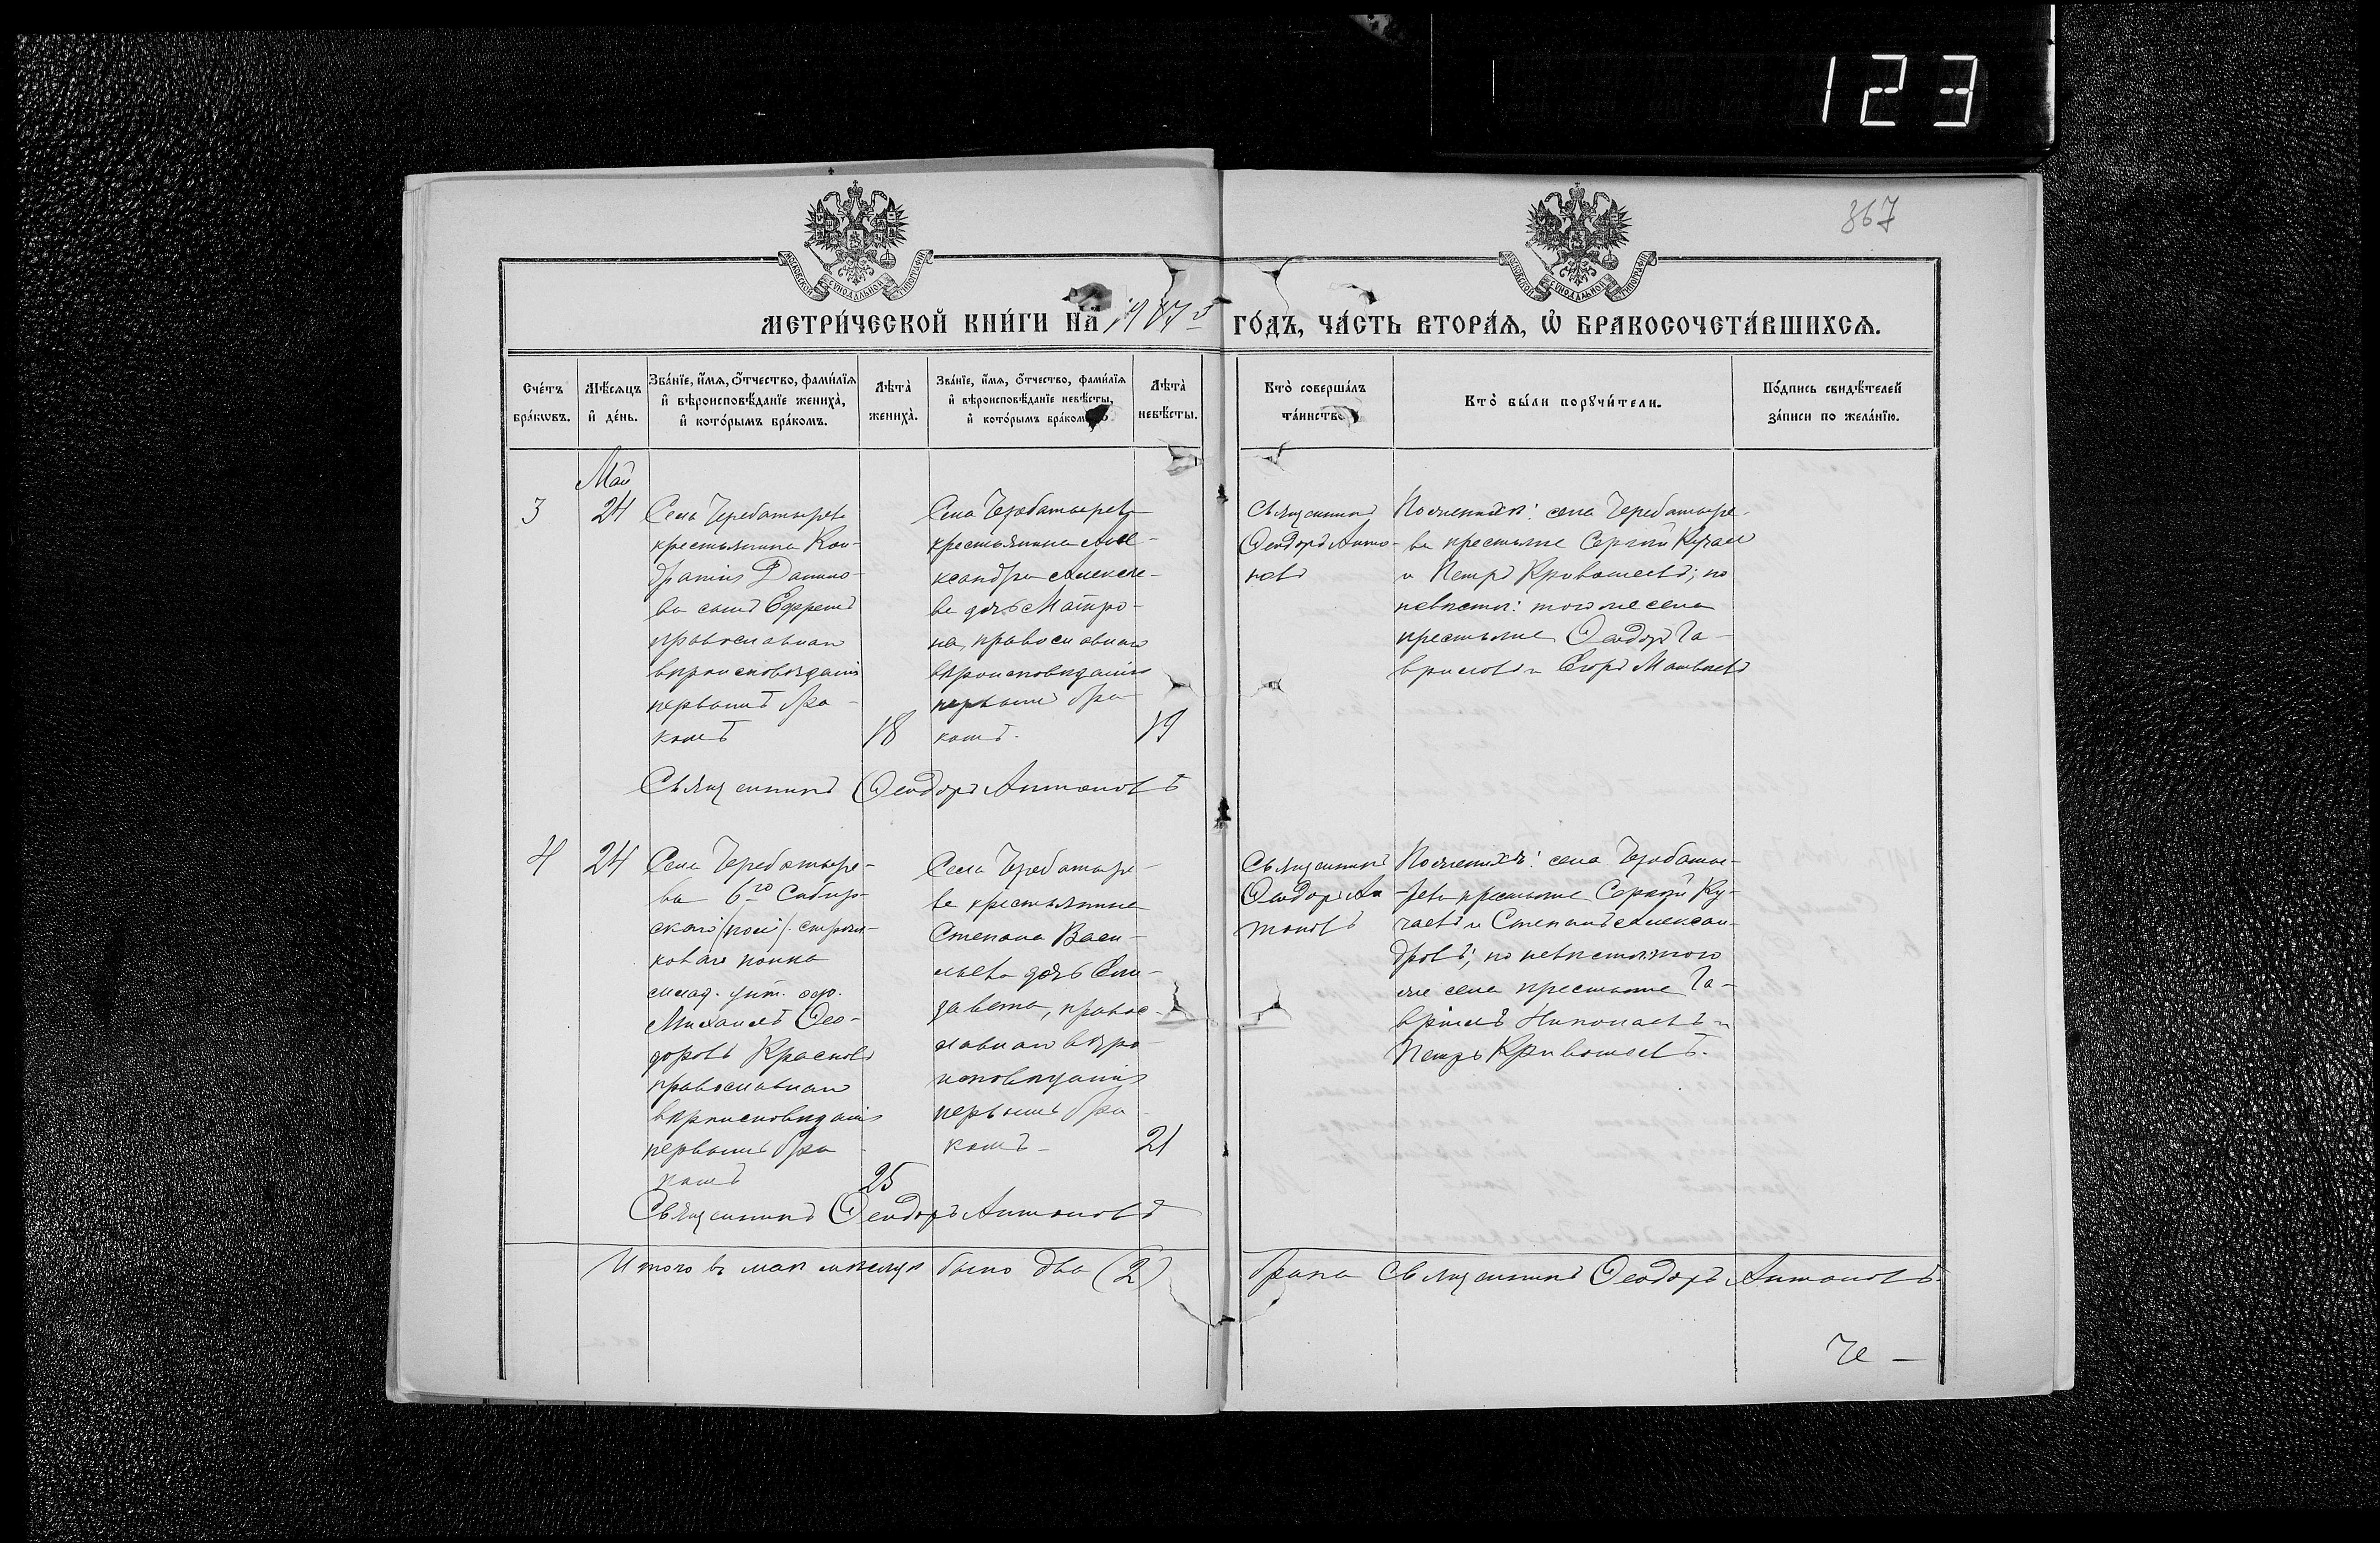 123
867
МОСКОВСКОЙ СѴНОДАЛЬНОЙ ТИПОГРАФІИ
МОСКОВСКОЙ СѴНОДАЛЬНОЙ ТИПОГРАФІИ
МЕТРИ́ЧЕСКОЙ КНИ́ГИ НА ГО́ДЪ, ЧА́СТЬ ВТОРА́Я, Ѡ҆ БРАКОСОЧЕТА́ВШИХСЯ.
Сче́тъ бра́кѡвъ.
Мѣ́сяцъ и҆ де́нь.
Зва́нїе, и҆́мя, ѻ҆́тчество, фами́лїя
и҆ вѣроисповѣ́данїе жениха̀,
и҆ кото́рымъ бра́комъ.
Лѣта̀ жениха̀.
Зва́нїе, и҆́мя, ѻ҆́тчество, фами́лїя
и҆ вѣроисповѣ́данїе невѣ́сты,
и҆ кото́рымъ бра́комъ.
Лѣта̀ невѣ́сты.
Кто̀ соверша́лъ та́инство
Кто̀ бы́ли порꙋчи́тели.
По́дпись свидѣ́телей за́писи по жела́нїю.
Май
3
24
Села Черебатырева
крестьянина Кон-
дратія Данило-
ва сынъ Ефремъ
православнаго
вѣроисповѣданія
первымъ бра-
комъ
18
Села Черебатырева
крестьянина Але-
ксандра Алексѣе-
ва дочь Матро-
на, православнаго
вѣроисповѣданія
первымъ бра-
комъ.
19
Священникъ
Ѳеодоръ Анто-
новъ
По женихѣ: села Черебатыре-
ва крестьяне Сергѣй Кучаев
и Петръ Кривошеевъ; по
невѣстѣ: того же села
крестьяне Ѳеодоръ Га-
вриловъ и Егоръ Матвѣевъ
Священникъ Ѳеодоръ Антоновъ
4
24
Села Черебатыре-
ва 6го Сибир-
скаго стрѣл-
коваго полка
млад. унт. оф.
Михаилъ Ѳео-
доровъ Красновъ
православнаго
вѣроисповѣданія
первымъ бра-
комъ
25
Села Черебатыре-
ва крестьянина
Степана Васи-
льева дочь Ели-
завета, правос-
лавнаго вѣро-
исповѣданія
первымъ бра-
комъ
21
Священникъ
Ѳеодоръ Ан-
тоновъ
По женихѣ: села Черебаты-
рева крестьяне Сергѣй Ку-
чаевъ и Степанъ Алексан-
дровъ; по невѣстѣ: того
же села крестьяне Га-
врiилъ Николаевъ и
Петръ Кривошеевъ.
Священникъ Ѳеодоръ Антоновъ
Итого въ маѣ мѣсяцѣ было два (2) брака Священникъ Ѳеодоръ Антоновъ
Че-